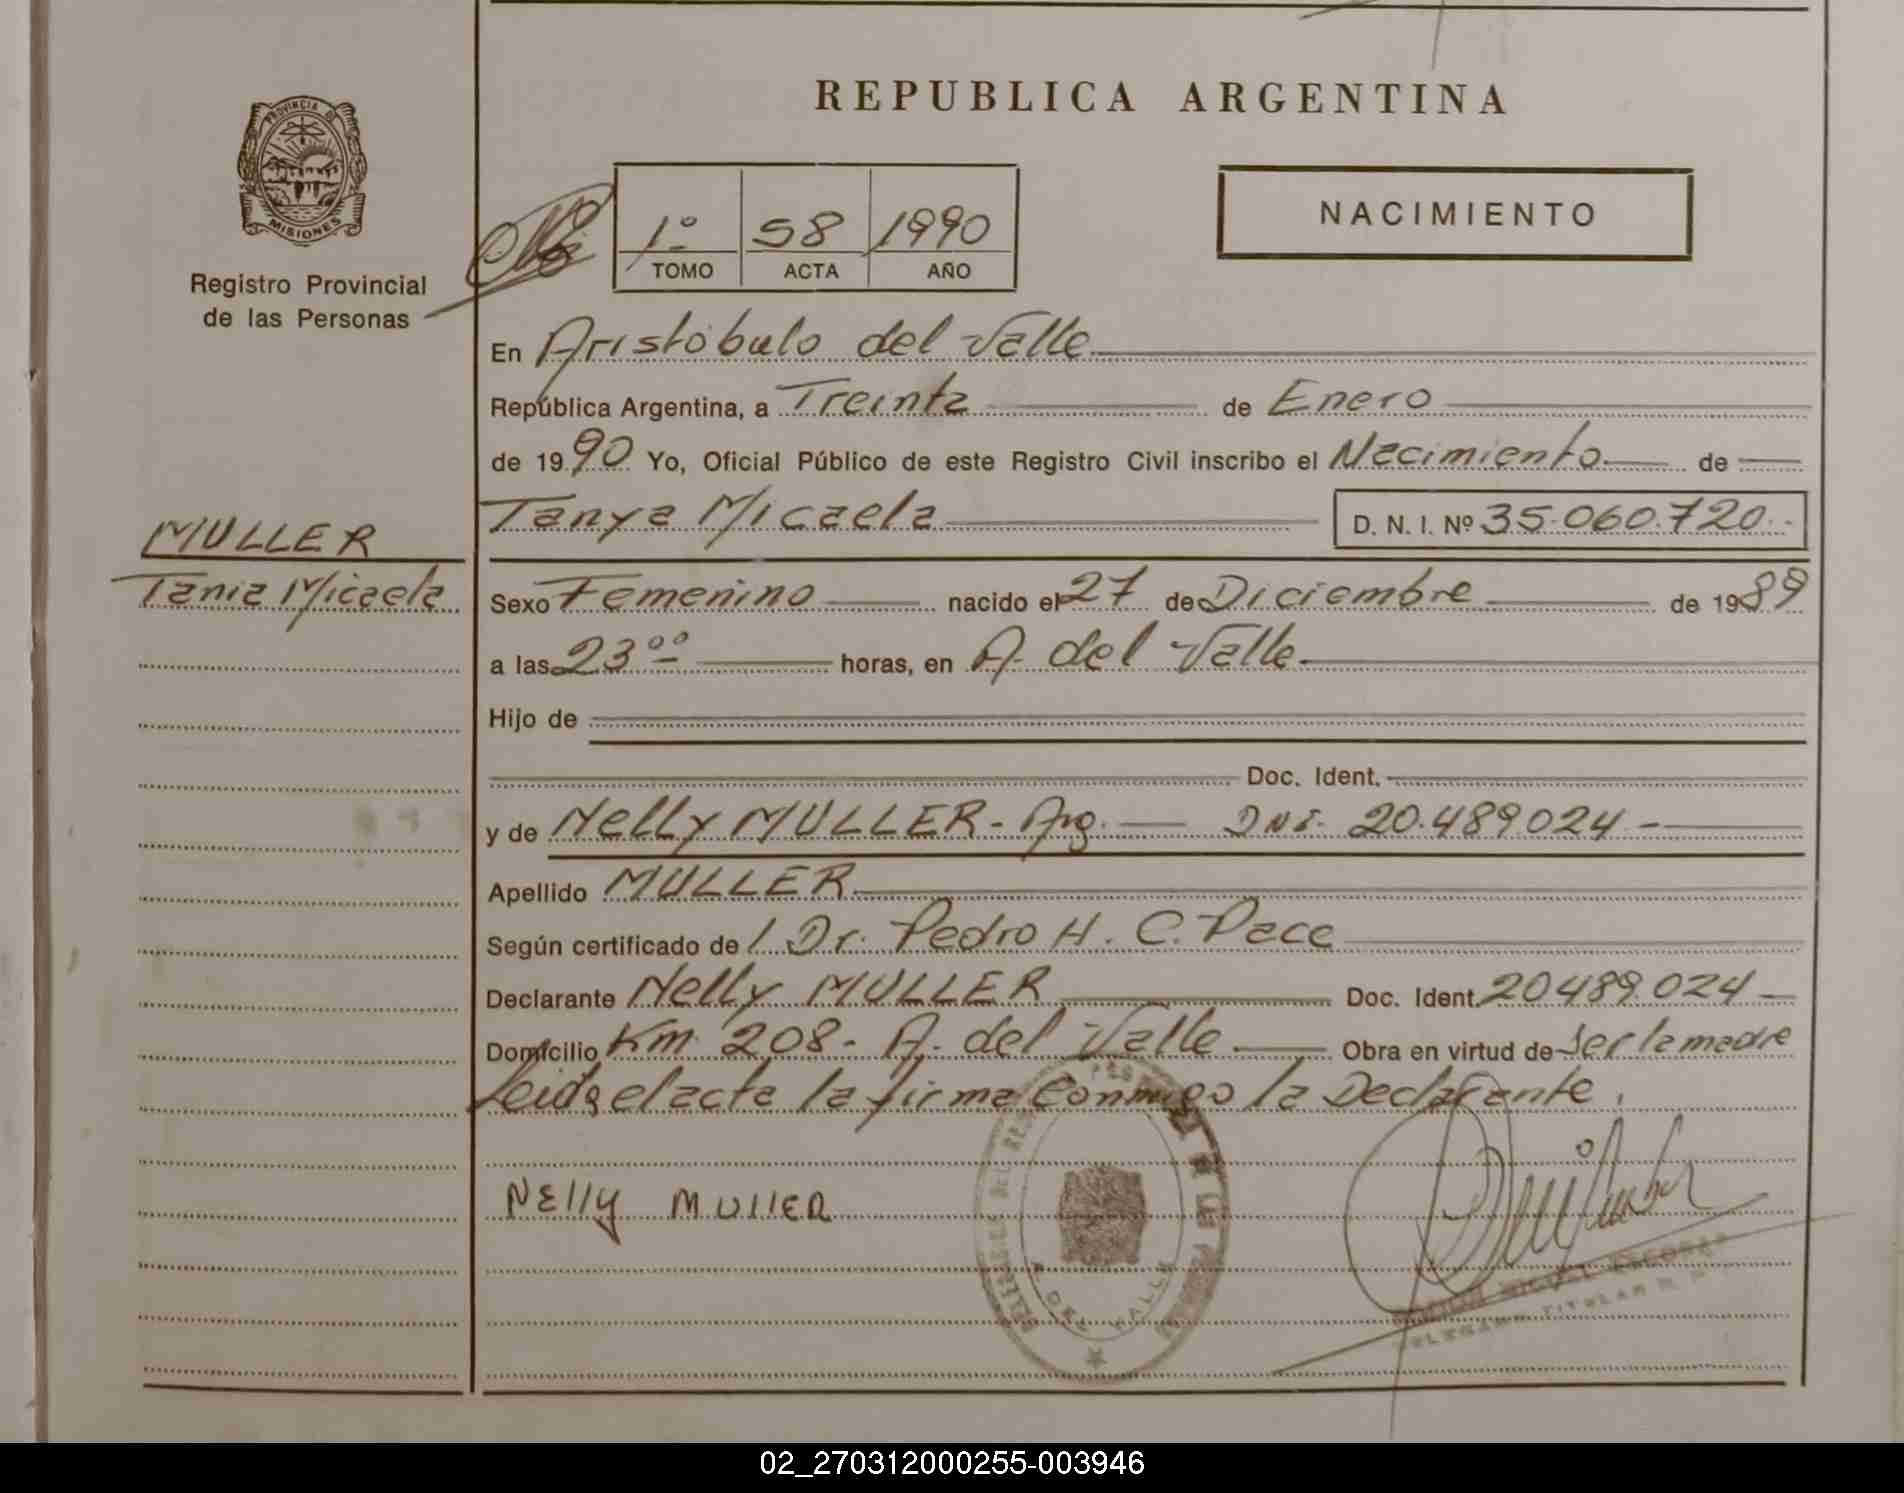 REPUBLICA ARGENTINA
PROVINCIA DE
MISIONES
Registro Provincial
de las Personas
1º 58 1990
TOMO ACTA AÑO
NACIMIENTO
En Aristóbulo del Valle
República Argentina, a Treinta de Enero
de 1990 Yo, Oficial Público de este Registro Civil inscribo el Nacimiento de
Tanya Micaela D. N. I. Nº 35.060.720.-
MULLER
Tania Micaela
Sexo Femenino nacido el 27 de Diciembre de 1989
a las 23ºº horas, en A. del Valle
Hijo de
Doc. Ident.
y de Nelly MULLER - Arg. DNI. 20.489.024 -
Apellido MULLER
Según certificado de / Dr. Pedro H. C. Pace
Declarante Nelly MULLER Doc. Ident. 20.489.024
Domicilio Km 208 - A. del Valle Obra en virtud de Ser la madre
Leida el acta la firma Conmigo la Declarante.
NEllY MUllER
A. DEL VALLE
TITULAR
02_270312000255-003946